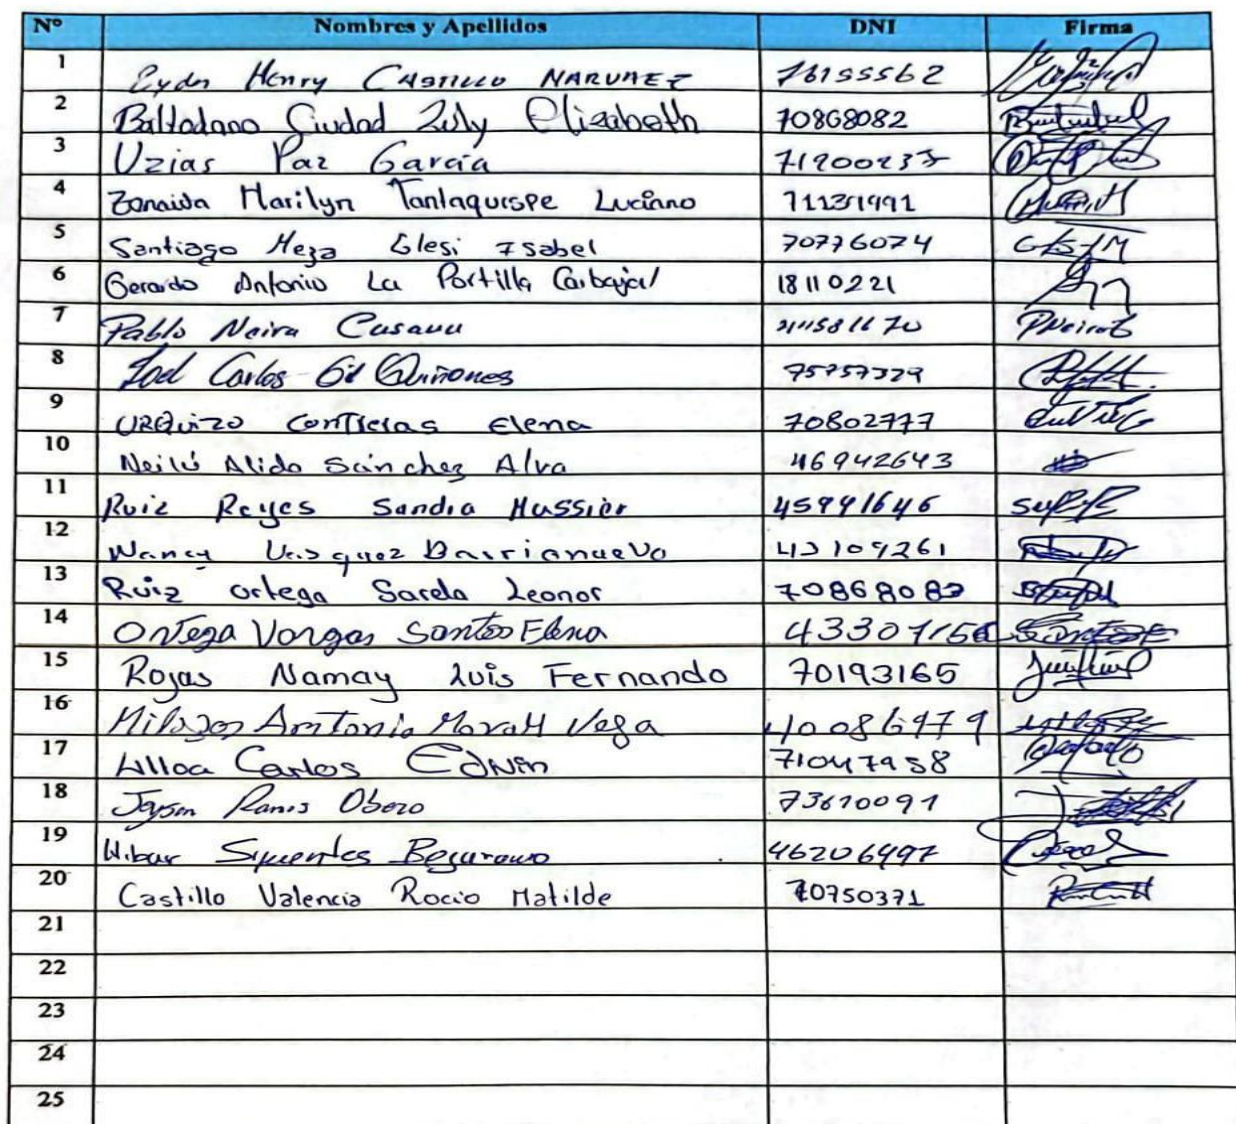 Nº Nombres y Apellidos DNI Firma
1 Henry CASTILLO NARVAEZ 76155562
2 Baltodano Ciudad Zuly Elizabeth 70868082
3 Uzias Paz Garcia
4 Zenaida Marilyn Tantaquispe Luciano
5 Santiago Meza Glesi Isabel 70776074 GSIM
6 Gerardo Antonio La Portilla Carbajal 18110221
7 Pablo Neira Casaua PNeiraC
8 Joel Carlos Gil Quiñones 75757329
9 URQuizo Contreras Elena 70802777
10 Neilú Alida Sánchez Alva 46942643
11 Ruiz Reyes Sandra Mussier 45941646
12 Nancy Vasquez Barrianuevo 43109261
13 Ruiz Ortega Sarela Leonor
14 Ortega Vargas Santos Elena
15 Rojas Namay Luis Fernando 70193165
16 Milagros Antonia Vega
17 Ulloa Carlos Edwin 71047958
18 Jayson Ramos Obezo 73610091
19 Wibar Sifuentes 46206497
20 Castillo Valencia Rocio Matilde 70750371
21
22
23
24
25